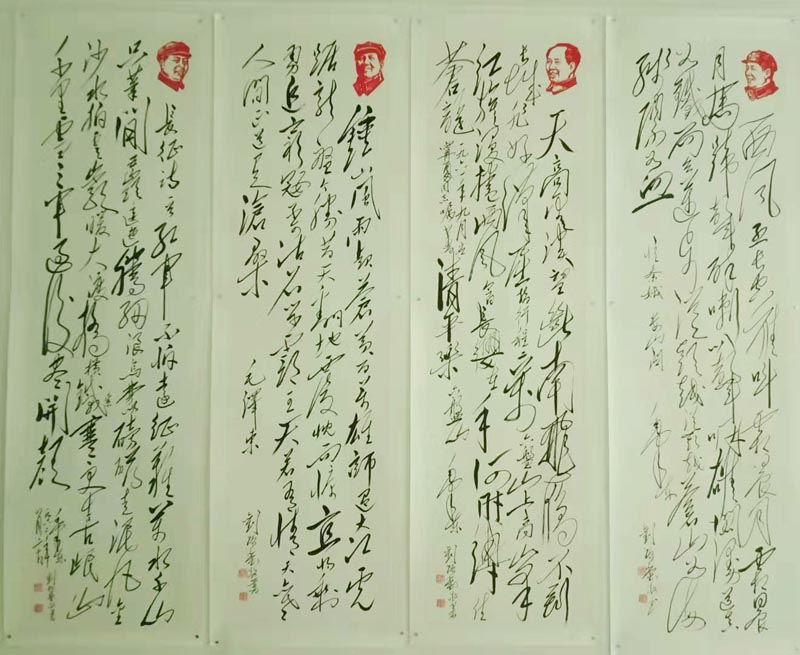 西风烈长空雁叫霜晨月霜晨
月马蹄声碎喇叭声咽雄关漫道真
如鐵而今迈步从头越从头越苍山如海
残阳如血
忆秦娥 娄山关
毛泽东
天高云淡望断南飛雁不到
长城非好漢屈指行程二萬六盘山上高峰
红旗漫捲西风今日長纓在手何时缚住
苍龙
一九六一年九月
清平樂 六盘山 毛泽东
鍾山風雨起蒼黄百万雄師过大江虎
踞龙盘今胜昔天翻地覆慨而慷宜将剩
勇追窮寇不可沽名学霸王天若有情天亦老
人间正道是滄桑
毛澤东
長征詩
红軍不怕遠征難萬水千山
只等闲五嶺逶迤騰细浪乌蒙磅礴走泥丸金
沙水拍云崖暖大渡橋横鐵索寒更喜岷山
千里雪三军过后尽開颜
毛泽东